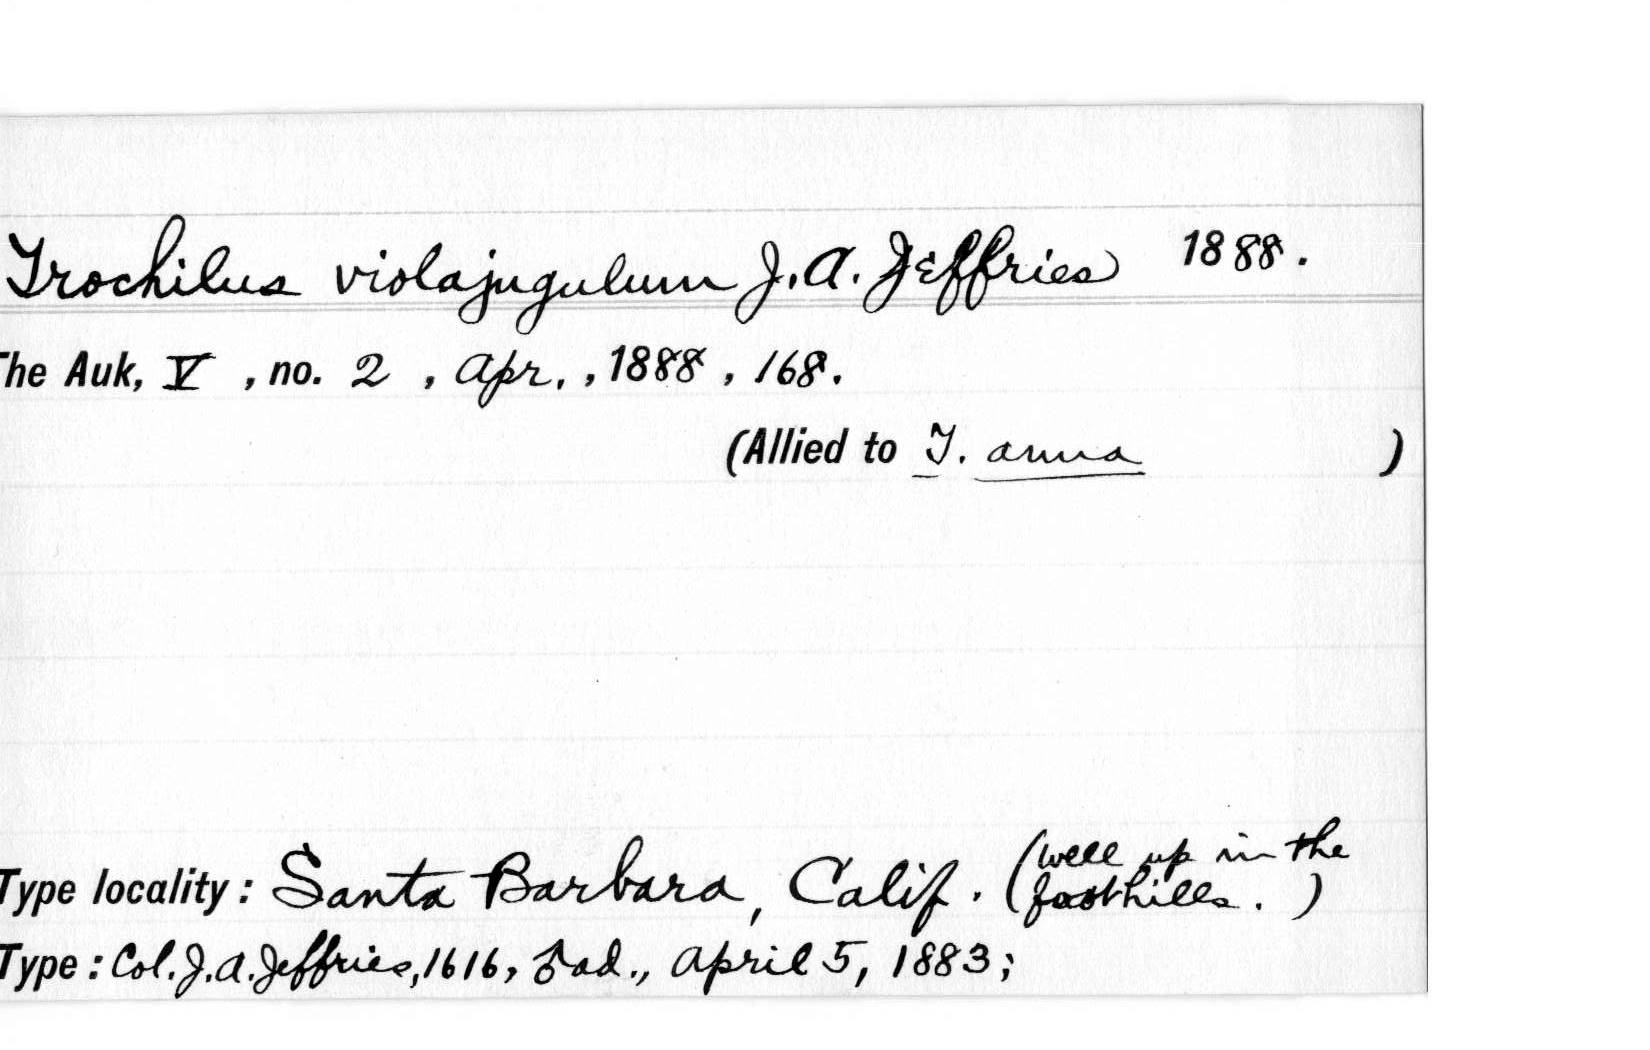 Trochilus violajugulum J. A. Jeffries 1888.
The Auk, V , no. 2 , Apr. , 1888 , 168.
(Allied to T. anna )
Type locality : Santa Barbara, Calif. (well up in the
foothills. )
Type : Col. J. A. Jeffries, 1616, ♂ ad., April 5, 1883;